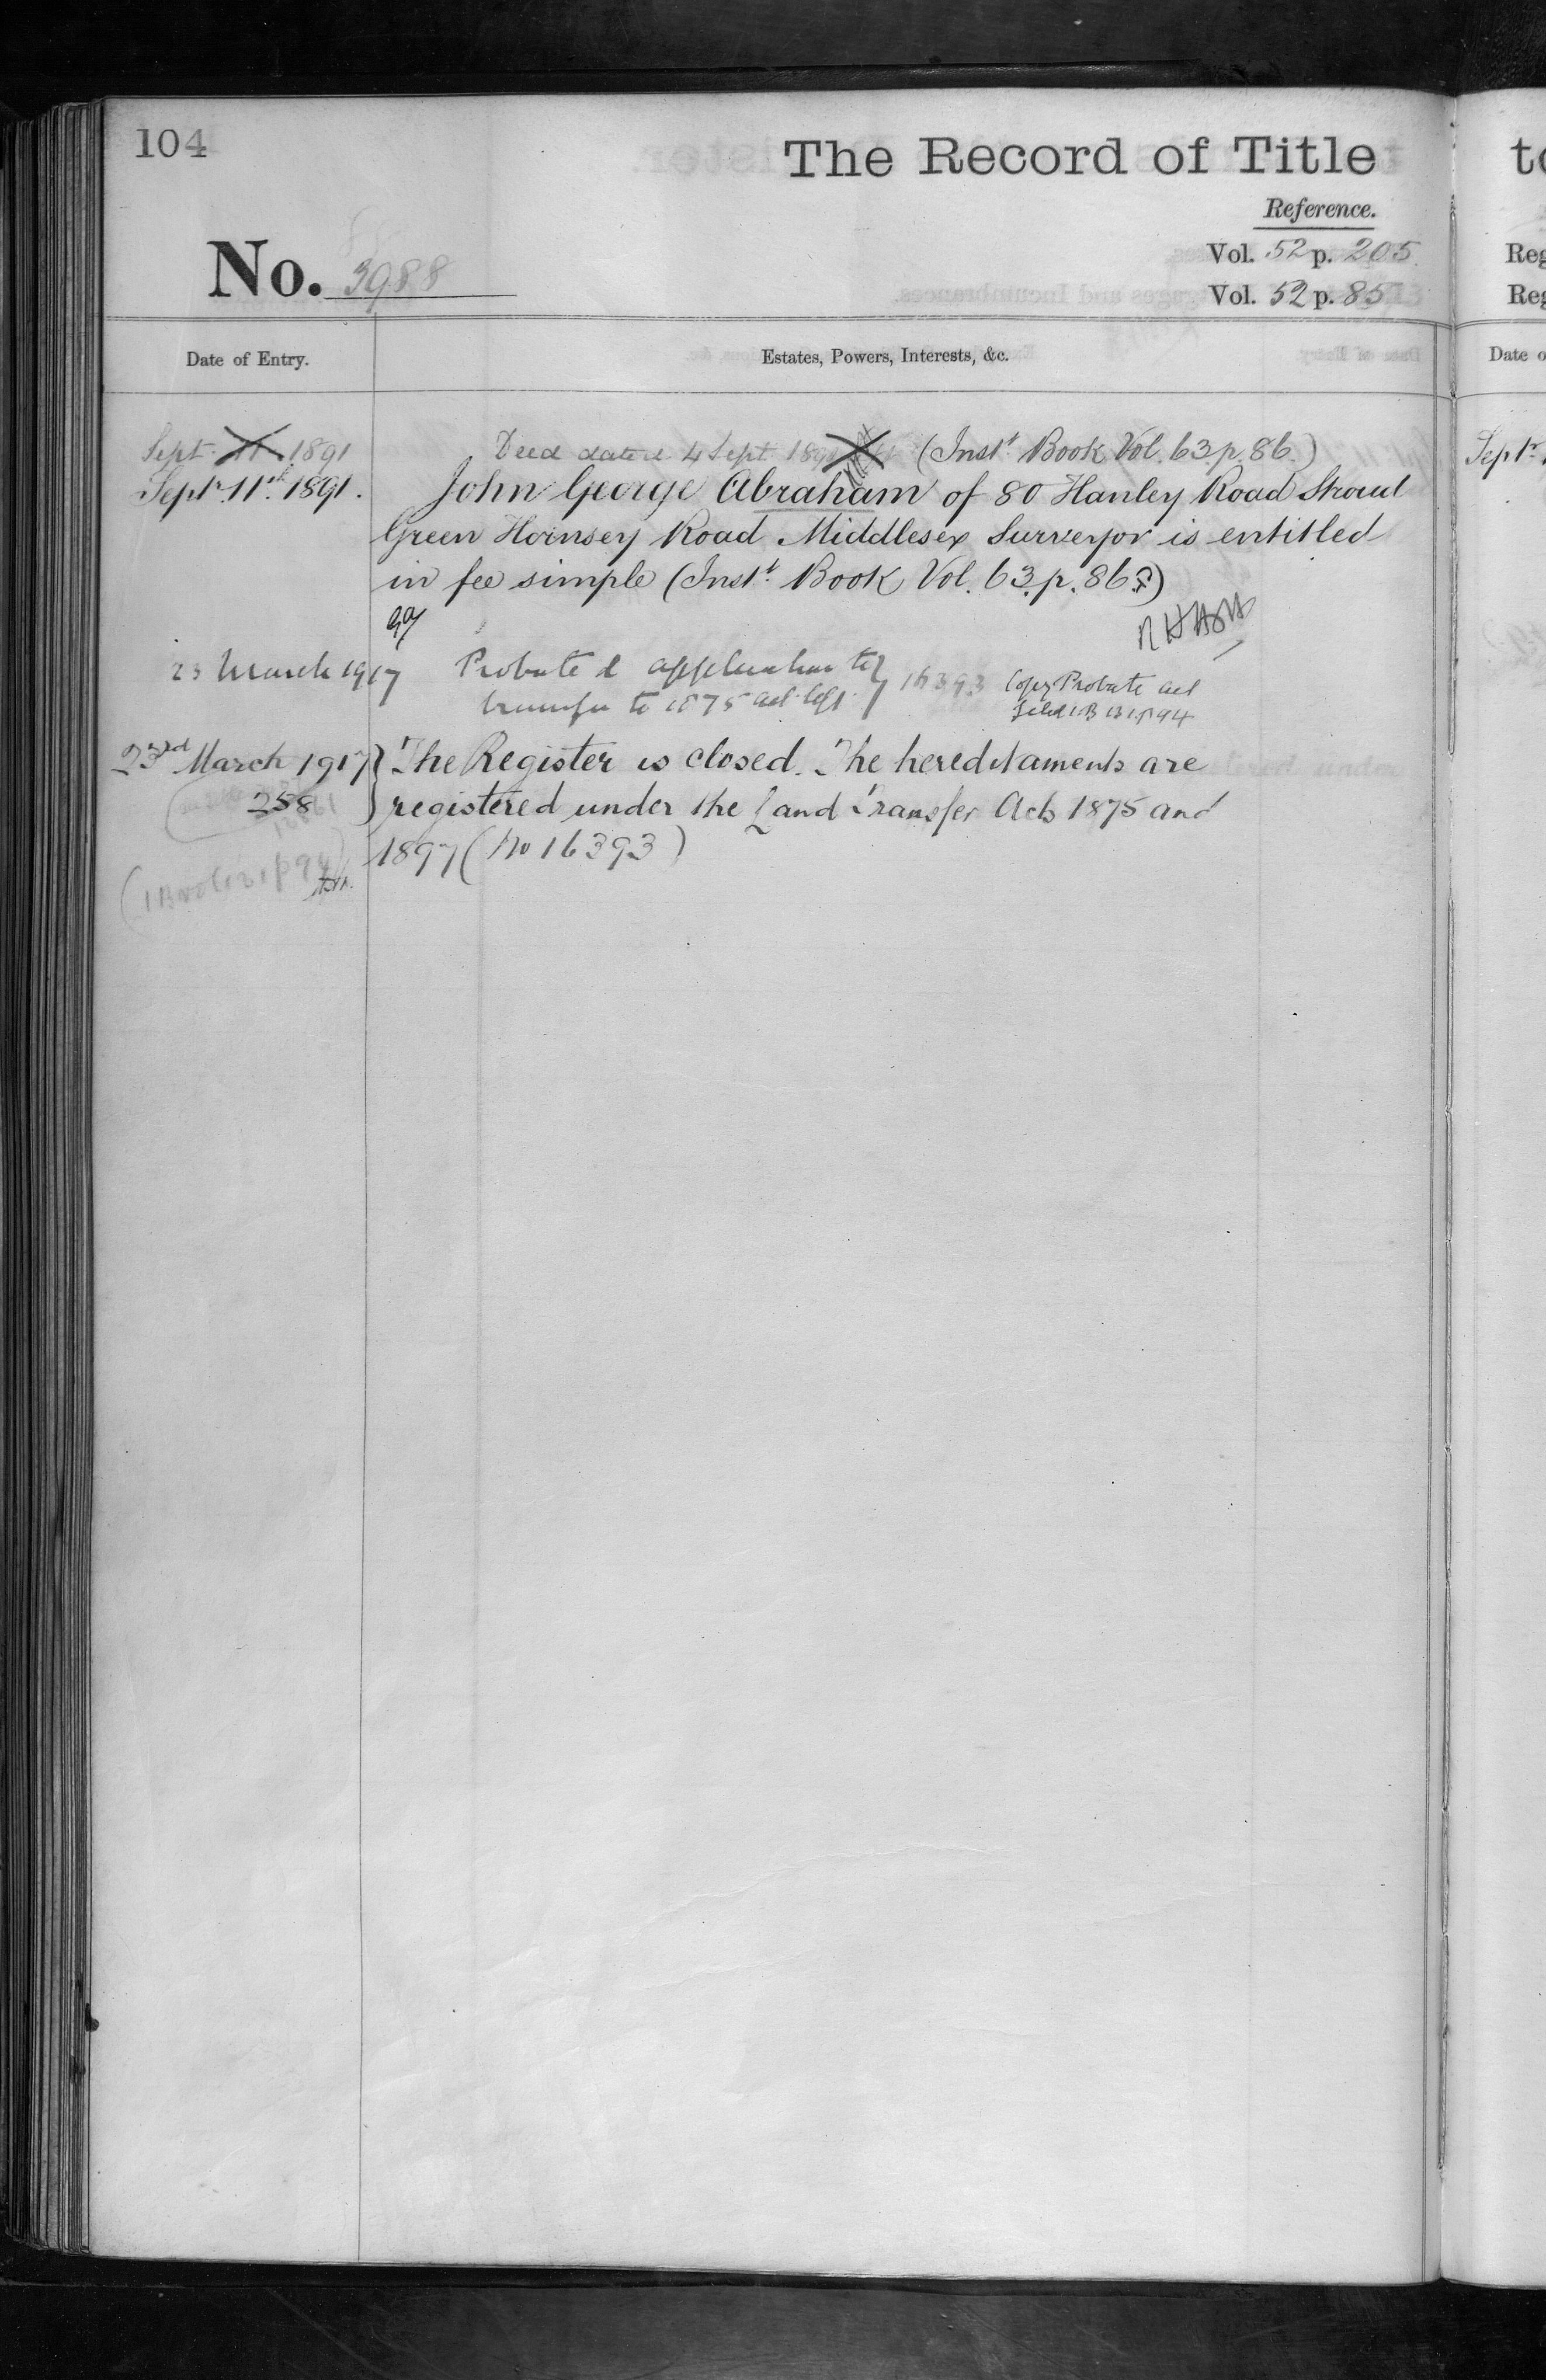 104
The Record of Title
Reference.
No. 3988
Vol. 52 p. 205
Vol. 52 p. 85
Date of Entry.
Estates, Powers, Interests, &c.
Sept 11 1891
Deed dated 4 Sept 1891 (Inst. Book Vol. 63 p. 86.)
Septr. 11th 1891.
John George Abraham of 80 Hanley Road Stroud
Green Hornsey Road Middlesex Surveyor is entitled
in fee simple (Instt. Book Vol. 63. p. 86.)
23 March 1917
Probate & application to } 16393
transfer to 1875 act left
Copy Probate
filed IB 131 p 94
23rd March 1917 } The Register is closed. The hereditaments are
258 registered under the Land Transfer Acts 1875 and
1897 (No 16393)
(IB vol 131 p 94)
to
Reg
Reg
Date o
Septr.